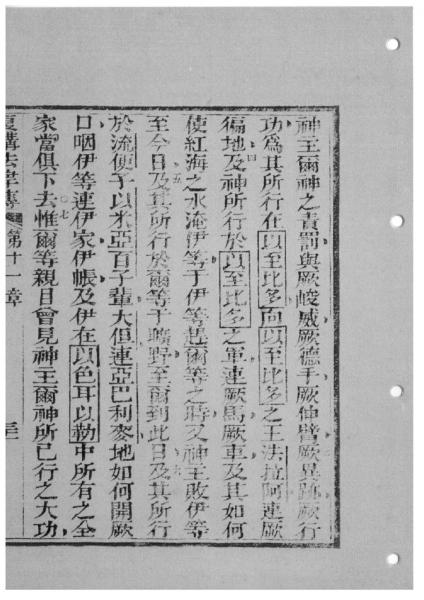 神主爾神之責罰與厥峻威厥德手厥伸臂厥異跡厥行
功爲其所行在以至比多向以至比多之王法拉阿連厥
徧地四及神所行於以至比多之軍連厥馬厥車及其如何
使紅海之水淹伊等于伊等趕爾等之時又神主敗伊等
至今日五及其所行於爾等于曠野至爾到此日六及其所行
於流便子以米亞百子輩大但連亞巴利麥地如何開厥
口咽伊等連伊家伊帳及伊在以色耳以勒中所有之全
家當俱下去七惟爾等親目會見神主爾神所已行之大功
第十一章